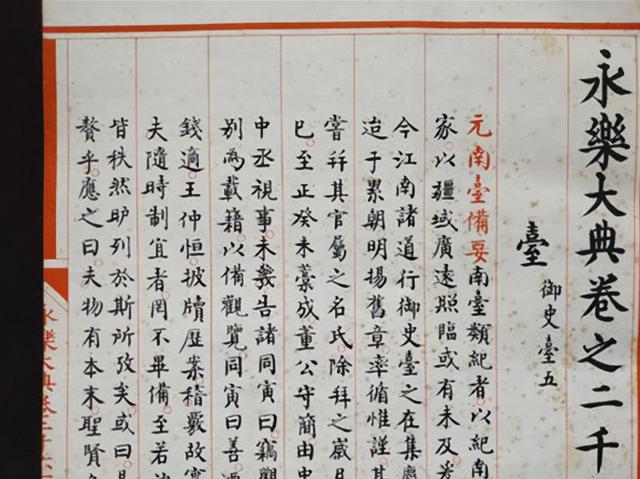 永樂大典卷之二千
臺 御史臺五
元南臺備要南臺類紀者以紀南
家以疆域廣遠照臨或有未及耑
今江南諸道行御史臺之在集慶
迨于累朝明揚舊章率循惟謹其
嘗并其官屬之名氏除拜之歲月
巳至正癸未藁成董公守簡由中
中丞視事未幾告諸同寅曰竊觀
別為載籍以備觀覽同寅曰善
錢適王仲恒披牘歷案稽覈故實
夫隨時制宜者罔不畢備至若
皆秩然昈列於斯所攷矣或曰是
贅乎應之曰夫物有本末聖賢
永樂大典卷二千六